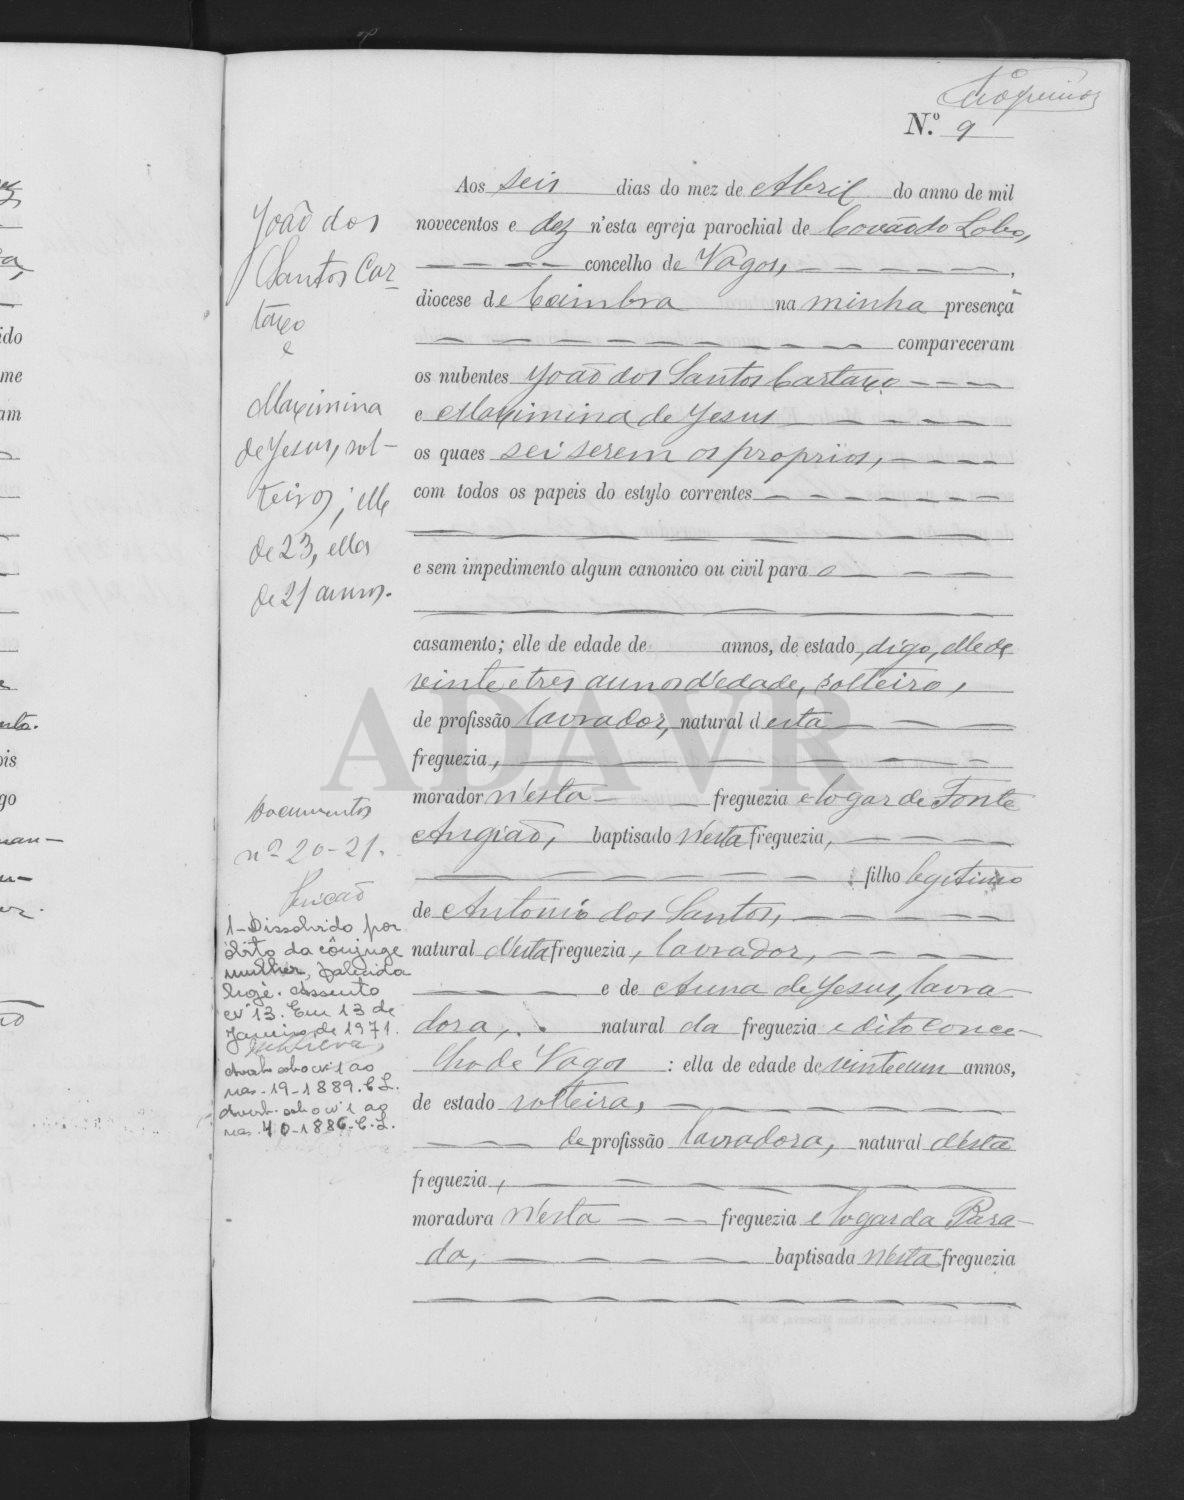 N.º 9
Aos seis dias do mez de Abril do anno de mil
novecentos e dez n'esta egreja parochial de Covão do Lobo,
concelho de Vagos,
diocese de Coimbra na minha presença
compareceram
os nubentes João dos Santos Cartaxo
e Maximina de Jesus
os quaes sei serem os proprios,
com todos os papeis do estylo correntes
e sem impedimento algum canonico ou civil para o
casamento; elle de edade de annos, de estado, digo, elle de
vinte e tres annos d'edade, solteiro,
de profissão lavrador, natural d'esta
freguezia,
morador n'esta freguezia e logar de Fonte
Angião, baptisado n'esta freguezia,
filho legitimo
de Antonio dos Santos,
natural d'esta freguezia, lavrador,
e de Anna de Jesus, lavra-
dora, natural da freguezia e dito conce-
lho de Vagos : ella de edade de vinte e um annos,
de estado solteira,
de profissão lavradora, natural d'esta
freguezia,
moradora n'esta freguezia e logar da Para-
da, baptisada n'esta freguezia
João dos
Santos Car-
taxo
e
Maximina
de Jesus, sol-
teiros; elle
de 23, ella
de 21 annos.
Documentos
nº 20-21.
1-Dissolvido por
óbito da cônjuge
mulher, falecida
hoje. Assento
nº 13. Em 13 de
Janeiro de 1971.
nas. 19-1889. C.L.
nas. 40-1886. C.L.
ido
me
am
nto.
ois
go
ADAVR